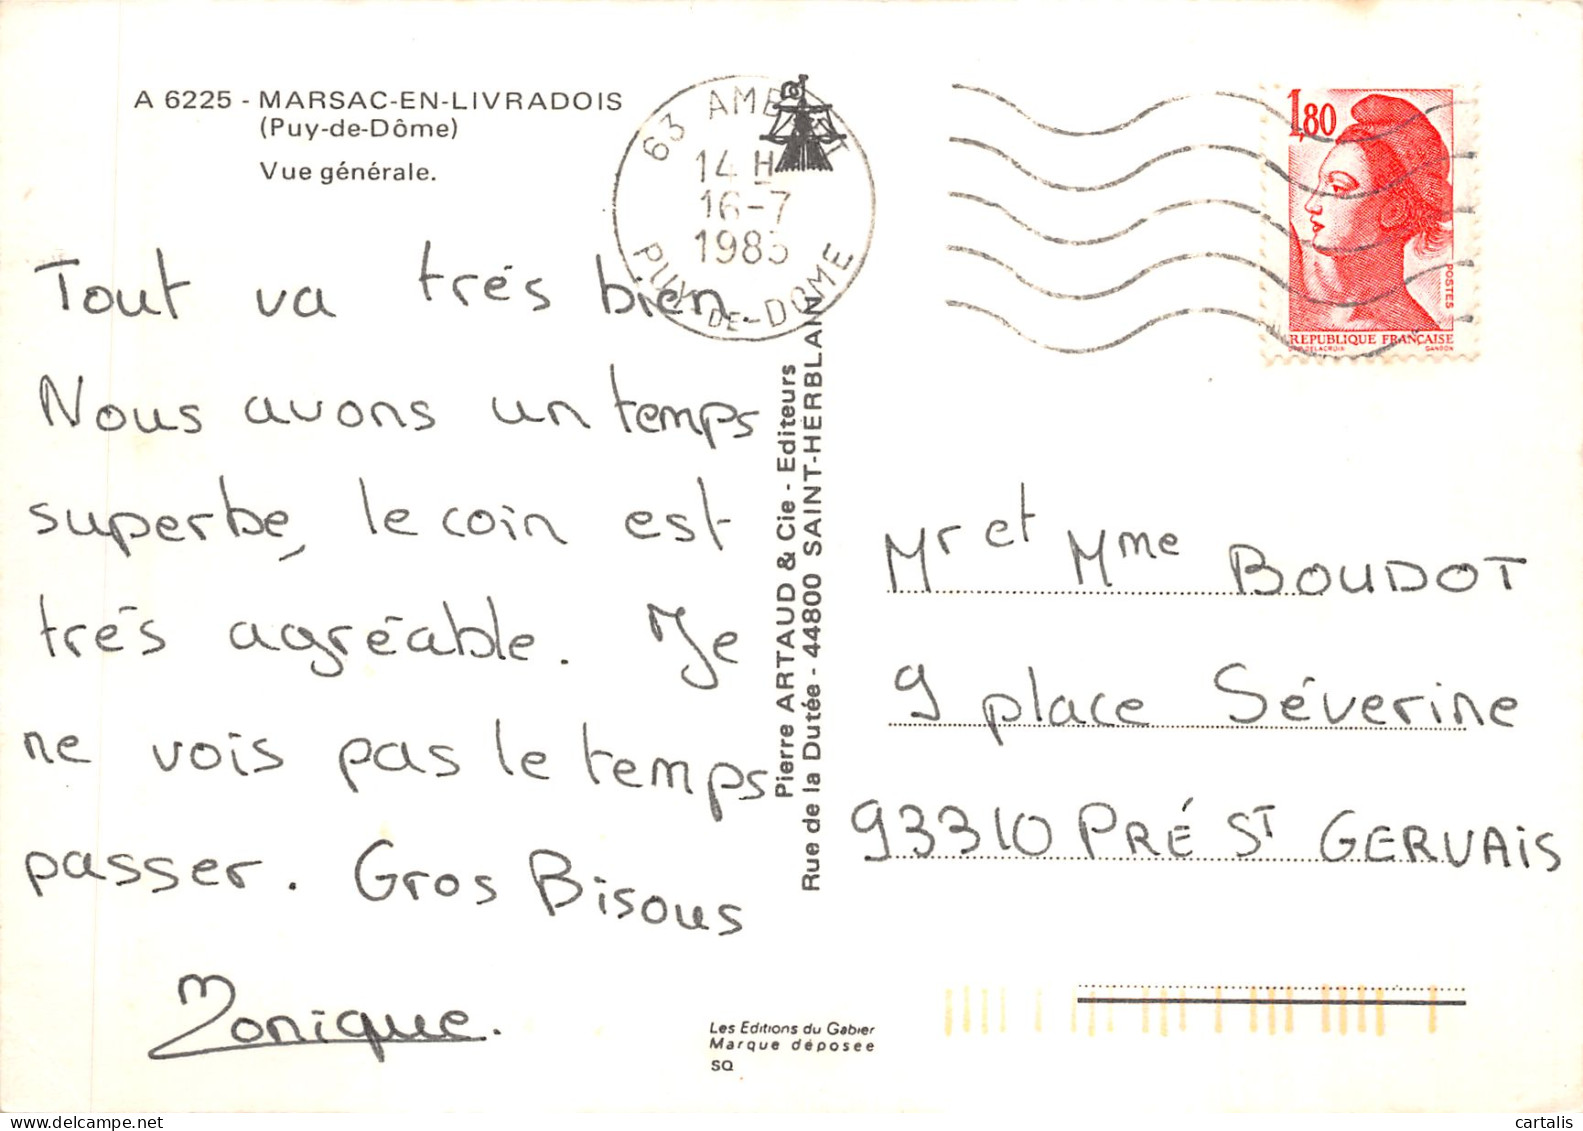 A 6225 - MARSAC-EN-LIVRADOIS
(Puy-de-Dôme)
Vue générale.
63 AMBERT
14 H
16-7
1985
PUY-DE-DOME
1,80
POSTES
REPUBLIQUE FRANÇAISE
DELACROIX GANDON
Tout va trés bien.
Nous avons un temps
superbe, le coin est
trés agréable. Je
ne vois pas le temps
passer. Gros Bisous
Monique.
Pierre ARTAUD & Cie - Editeurs
Rue de la Dutée - 44800 SAINT-HERBLAIN
Mr et Mme BOUDOT
9 place Séverine
93310 PRÉ ST GERVAIS
Les Editions du Gabier
Marque déposée
SQ
cartalis